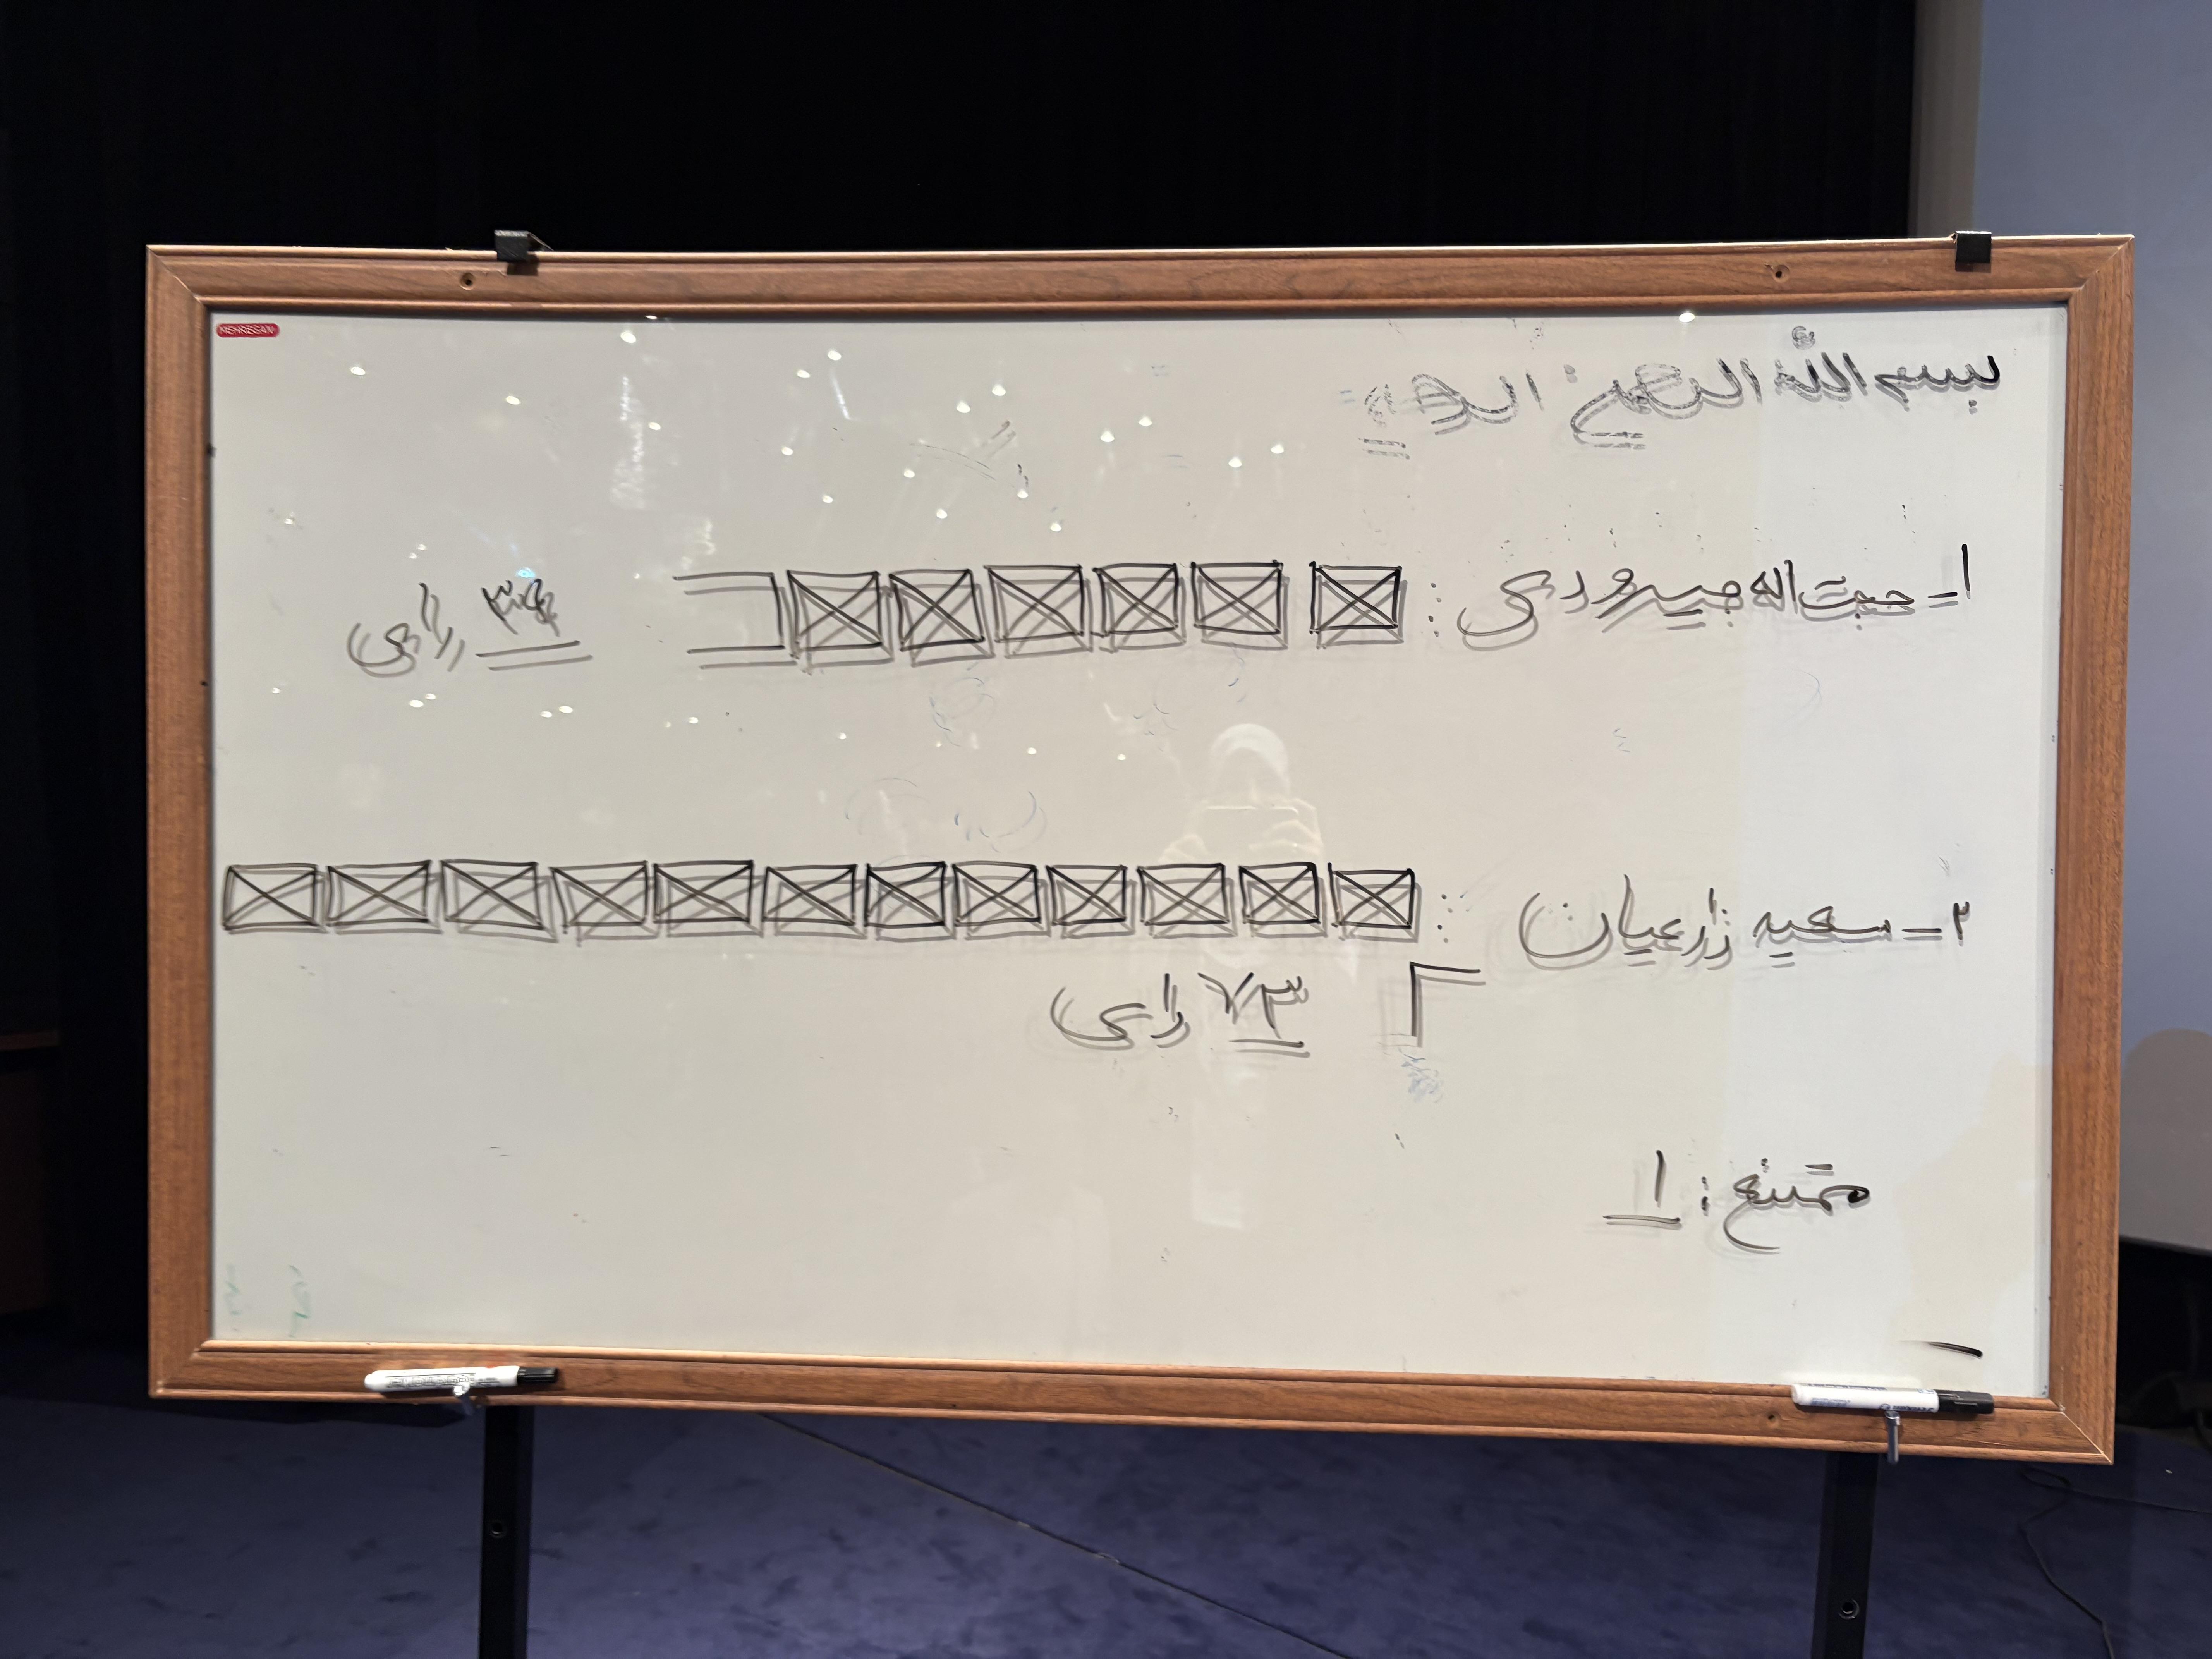 بسم الله الرحمن الرحیم
MEHREGAN
۱- حجت اله جیرودی : ۳۹ رای
۲- سعید زارعیان :
۷۴ رای
ممتنع : ۱